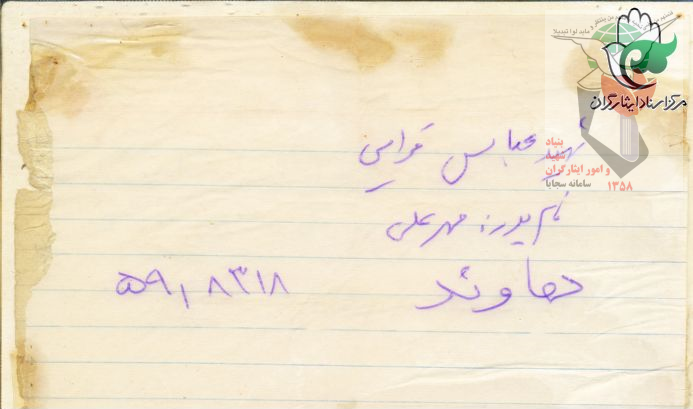 مرکز اسناد ایثارگران
شهید عباس
بنیاد
شهید
و امور ایثارگران
سامانه سجایا ۱۳۵۸
نام پدر: مهرعلی
دماوند ۵۹۱۸۳۱۸